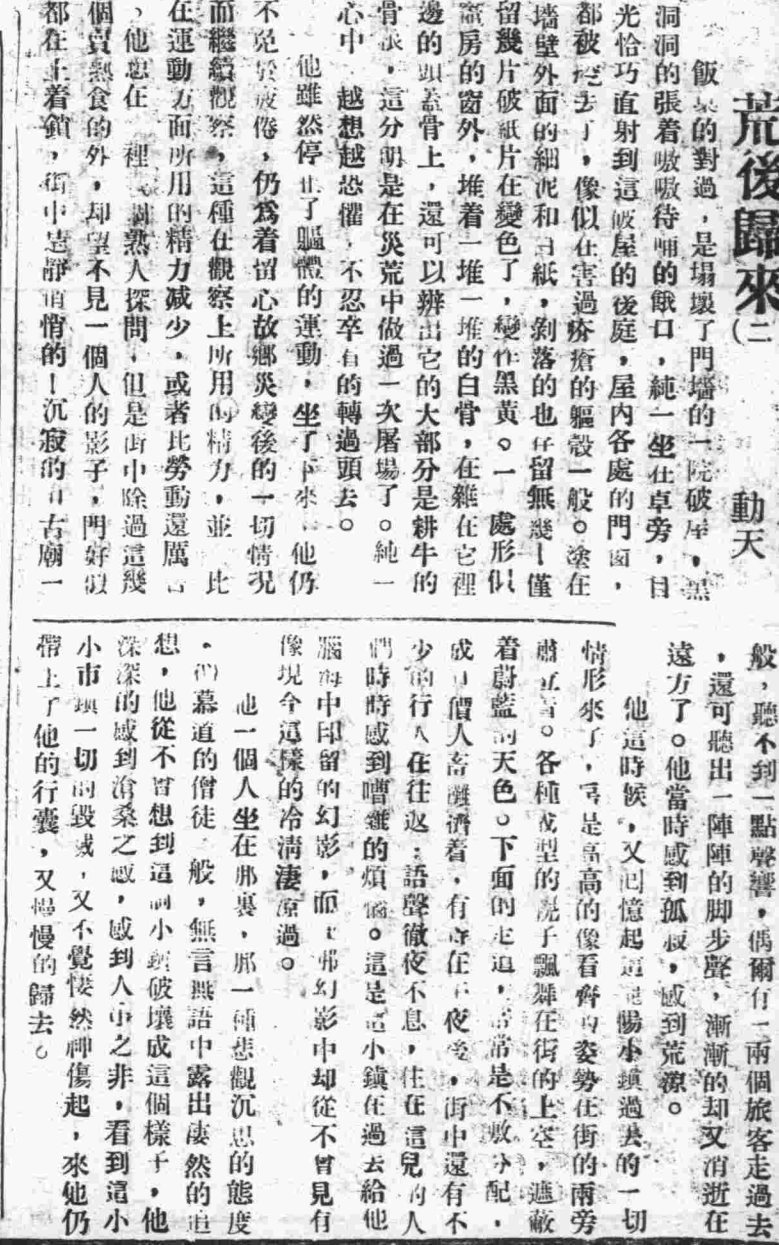 荒後歸來
(二)
動天
飯 的對過，是塌壞了門墻的一院破屋，黑
洞洞的張着嗷嗷待哺的餓口，純一坐在卓旁，目
光恰巧直射到這破屋的後庭，屋内各處的門窗，
都被 去了，像似在害過疥瘡的軀殼一般。塗在
墻壁外面的細泥和白紙，剝落的也存留無幾！僅
留幾片破紙片在變色了，變作黑黃。一 處形似
房的窗外，堆着一堆一堆的白骨，在雜在它裡
邊的頭蓋骨上，還可以辨出它的大部分是耕牛的
骨 ，這分明是在災荒中做過一次屠場了。純一
心中 越想越恐懼，不忍卒看的轉過頭去。
他雖然停止了軀體的運動，坐了下來，他仍
不免於疲倦，仍爲着留心故鄉災變後的一切情況
而繼續觀察，這種在觀察上所用的精力，並 比
在運動方面所用的精力减少，或者比勞動還厲害
，他想在 裡 個熟人探問，但是街中除過這幾
個賣熱食的外，却望不見一個人的影子，門好似
都在上着鎖，街中是靜悄悄的！沉寂的和古廟一
般，聽不到一點聲響，偶爾有一兩個旅客走過去
，還可聽出一陣陣的脚步聲，漸漸的却又消逝在
遠方了。他當時感到孤寂，感到荒凉。
他這時候，又回憶起這 小鎮過去的一切
情形來了， 是高高的像看齊的姿勢在街的兩旁
肅立着。各種成型的 子飄舞在街的上空，遮蔽
着蔚藍的天色。下面的走道，常常是不敷分配，
成 價人畜灘濟着，有時在半夜後，街中還有不
少的行人在往返；語聲徹夜不息，住在這兒的人
們時時感到嘈雜的煩惱。這是這小鎮在過去給他
腦海中印留的幻影，而 那幻影中却從不曾見有
像現今這樣的冷清凄凉過。
他一個人坐在那裏，那一種悲觀沉思的態度
， 慕道的僧徒一般，無言無語中露出凄然的追
想，他從不曾想到這個小鎮破壞成這個樣子，他
深深的感到滄桑之感，感到人事之非，看到這小
小市鎮一切的毀滅，又不覺悽然神傷起，來她仍
帶上了他的行囊，又慢慢的歸去。